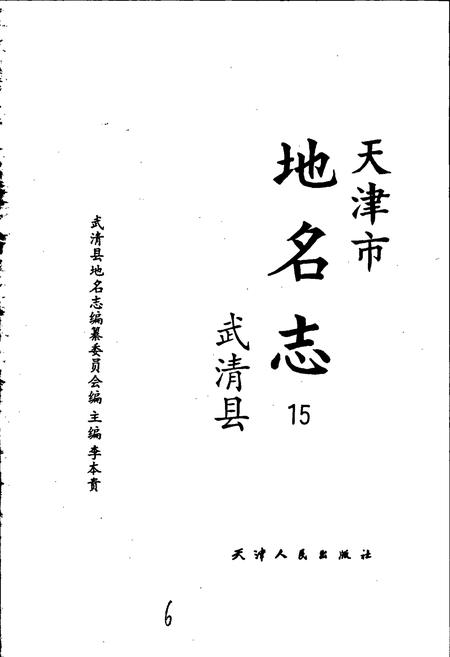 天津市
地名志
15
武清县
武清县地名志编纂委员会编 主编 李本贵
天津人民出版社
6